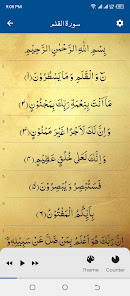 9:08 PM
سورة القلم
بِسْمِ اللَّهِ الرَّحْمَٰنِ الرَّحِيمِ
نٓ وَالْقَلَمِ وَمَا يَسْطُرُونَ ﴿١﴾
مَا أَنتَ بِنِعْمَةِ رَبِّكَ بِمَجْنُونٍ ﴿٢﴾
وَإِنَّ لَكَ لَأَجْرًا غَيْرَ مَمْنُونٍ ﴿٣﴾
وَإِنَّكَ لَعَلَىٰ خُلُقٍ عَظِيمٍ
فَسَتُبْصِرُ وَيُبْصِرُونَ ﴿٥﴾
بِأَييِّكُمُ الْمَفْتُونُ ﴿٦﴾
إِنَّ رَبَّكَ هُوَ أَعْلَمُ بِمَن ضَلَّ عَن سَبِيلِهِ
Theme Counter